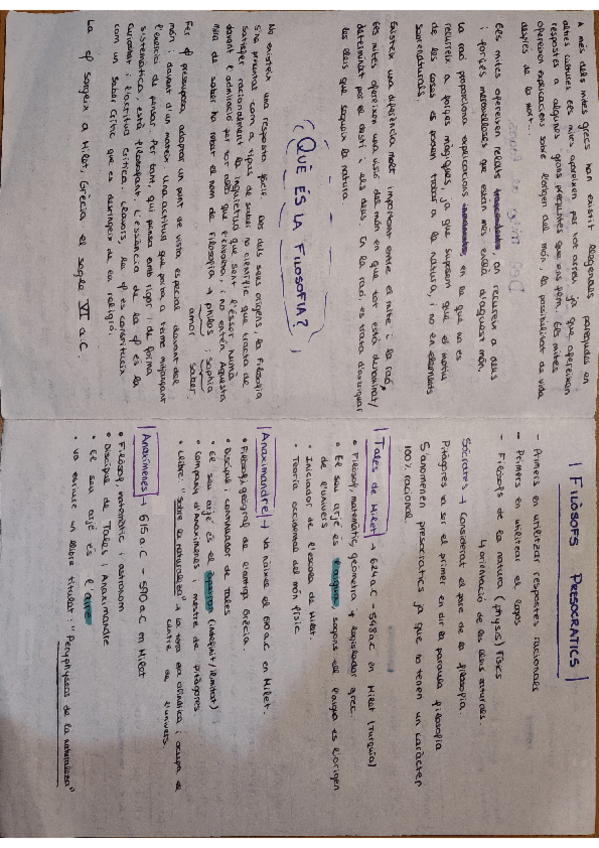 A més dels mites grecs han existit llegendes paregudes en
altres cultures. Els mites apareixen per tot arreu ja que ofereixen
respostes a algunes grans preguntes que ens fem. Els mites
ofereixen explicacions sobre l'origen del món, la possibilitat de vida
després de la mort...
Els mites ofereixen relats, on recorrein a déus
i forçes meravelloses que estan més enllà d'aquest món.
La raó proporciona explicacions, en la que no es
recorreix a forçes màgiques, ja que suposem que el motiu
de les coses es poden trobar a la natura, i no en elements
sobrenaturals.
Existeix una diferència molt important entre el mite i la raó,
Els mites ofereixen una visió del món en que tot està dominat/
determinat per el destí i els déus. En la raó, es tracta d'esbrinar
les lleis que segueix la natura.
¿QUÈ ÉS LA FILOSOFIA?
No existeix una resposta fàcil. Des dels seus orígens, la filosofia
s'ha presentat com tipus de saber no científic que tracta de
satisfer racionalment la inquietud que sent l'ésser humà
davant l'admiració per tot allò que l'envolta i no entén. Aquesta
mira de saber ha rebut el nom de Filosofia → philos i sophia
amor saber
Fer φ pressuposa adoptar un punt de vista especial davant del
món i davant d'un mateix. Una actitud que porta a terme mitjançant
l'exercici de pensar. Per tant, qui pensa amb rigor i de forma
sistemàtica, està filosofant. L'essència de la φ és la
curiositat i l'actitud crítica. Llavors, la φ es constitueix
com un saber crític que es desvincula de la religió.
La φ sorgeix a Milet, Grècia el segle VI a.C.
FILÒSOFS PRESOCRÀTICS
- Primers en utilitzar respostes racionals
- Primers en utilitzar el logos
- Filòsofs de la natura (physis) físics
orientació de les lleis naturals.
Sócrates → Considerat el pare de la filosofia.
Pitàgores va ser el primer en dir la paraula filosofia
S'anomenen presocratics ja que no tenen un caràcter
100% racional.
Tales de Milet → 624 a.C - 548 a.C en Milet (Turquía)
• Filòsof matemàtic, geometra i legislador grec.
• El seu arjé és l'aigua, segons ell l'aigua es l'origen
de l'univers
• Iniciador de l'escola de Milet.
• Teoria occidental del món físic.
Anaximandre → Va nàixer el 610 a.C en Milet.
• Filòsof, geògraf de l'antiga Grècia.
• Discípul i continuador de Tales
• El seu arjé és el apeiron (indefinit/ilimitat)
• Company d'Anaxímenes i mestre de Pitàgores
• Llibre: "Sobre la naturalesa" → La terra és cilíndrica i ocupa el
centre de l'univers.
Anaxímenes → 615 a.C - 590 a.C en Milet
• Filòsof, matemàtic i astrònom
• Discípul de Tales i Anaximandre
• El seu arjé és l'aire
• Va escriure un llibre titulat: "Periphyseos de la naturaleza"